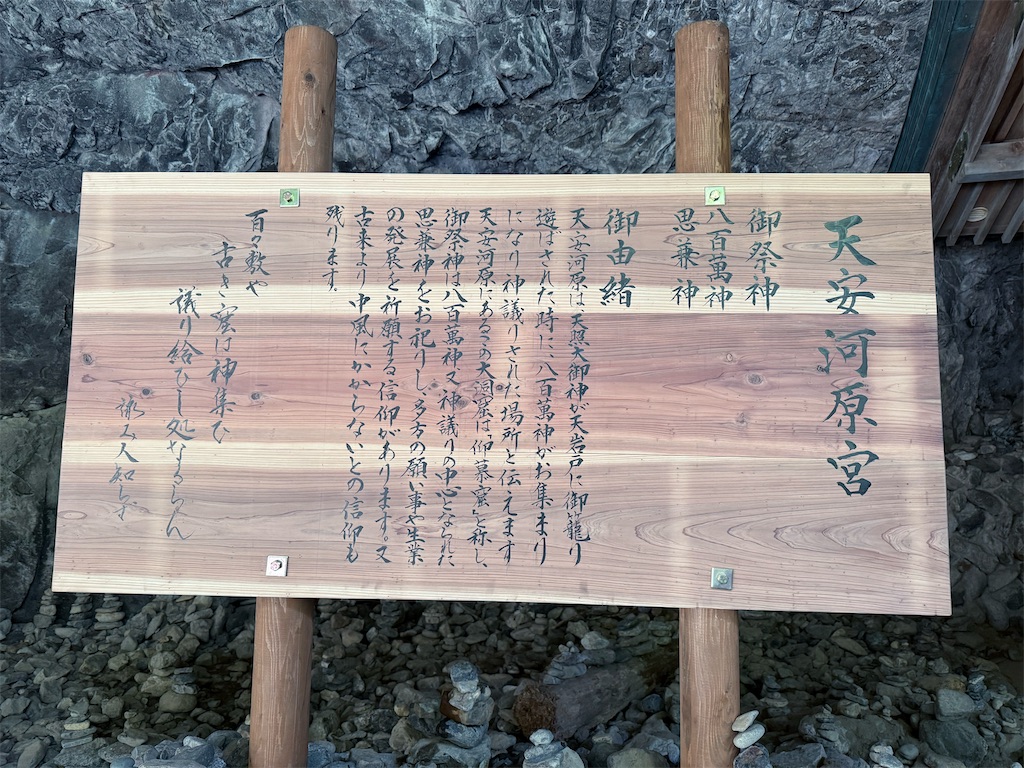 天安河原宮
御祭神
八百萬神
思兼神
御由緒
天安河原は、天照大御神が天岩戸に御籠り
遊ばされた時に、八百萬神がお集まり
になり神議りされた場所と伝えます
天安河原にあるこの大洞窟は、「仰慕窟」と称し、
御祭神は八百萬神又、神議りの中心となられた
思兼神をお祀りし、多方の願い事や生業
の発展を祈願する信仰があります。又
古来より中風にかからないとの信仰も
残ります。
百々敷や
古き窟は神集ひ
議り給ひし処なるらん
詠み人知らず